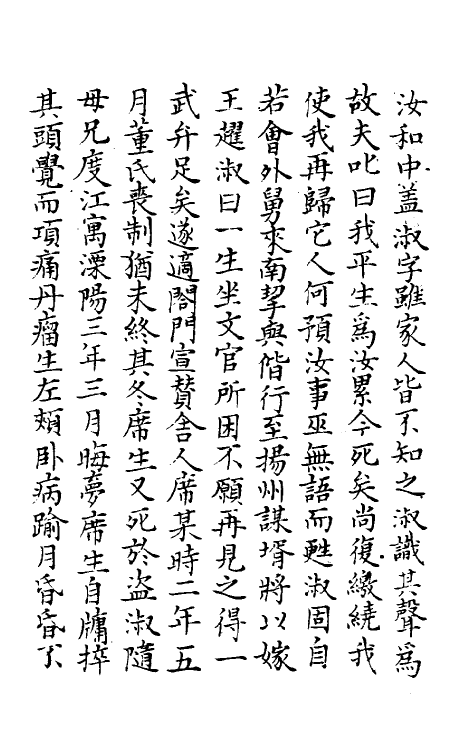 汝和中盖淑字雖家人皆不知之淑識其聲為
故夫叱曰我平生為汝累今死矣尚復繳繞我
使我再歸它人何預汝事巫無語而甦淑固自
若會外舅來南挈與偕行至揚州謀壻將以嫁
王趯淑曰一生坐文官所困不願再見之得一
武弁足矣遂適閤門宣賛舍人席某時二年五
月董氏喪制猶未終其冬席生又死於盗淑隨
母兄度江寓溧陽三年三月晦夢席生自牖捽
其頭覺而項痛丹瘤生左頰卧病踰月昏昏不